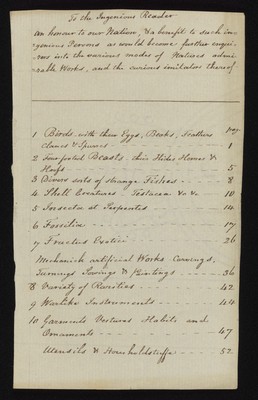 To the Ingenious Reader
an honour to our Nation, & a benefit to such in-
-genious Persons as would become further enqui-
-rers into the various modes of Natures admi-
-rable Works, and the curious imitators thereof
pag.
1 Birds, with their Eggs, Beaks, Feathers
claws & Spurres - - - 1
2 Fourfooted Beasts, their Hides Hornes &
Hoofs - - - 5
3 Divers sorts of strange Fishes - - 8
4 Shell Creatures Testacea &c &c - - 10
5 Insecta et Serpentes - - - 14
6 Fossilia - - - 17
7 Fructus Exotici - - - 26
Mechanick artificial Works Carvings,
Turnings Sowings & Paintings - - - 36
8 Variety of Rarities - - - 42
9 Warlike Instruments - - - 44
10 Garments Vestures Habits and
Ornaments - - - 47
Utensils & Householdstuffe - - - 52